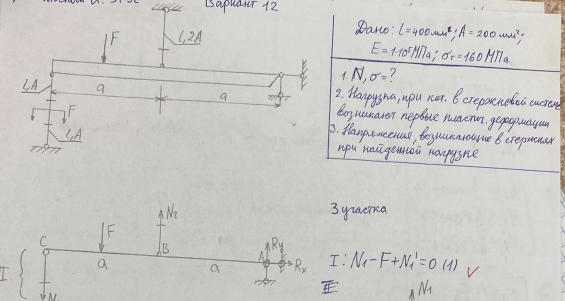 Вариант 12
F
l, 2A
l, A
a
a
F
l, A
Дано: l = 400 мм²; A = 200 мм²;
E = 1·10⁵ МПа; σт = 160 МПа
1. N, σ = ?
2. Нагрузка, при кот. в стержневой систем
возникают первые пластич. деформации
3. Напряжения, возникающие в стержнях
при найденной нагрузке
3 участка
N₂
F
C
B
A
Ry
Rx
a
a
I
I: N₁ - F + N₁' = 0 (1)
II:
N₁